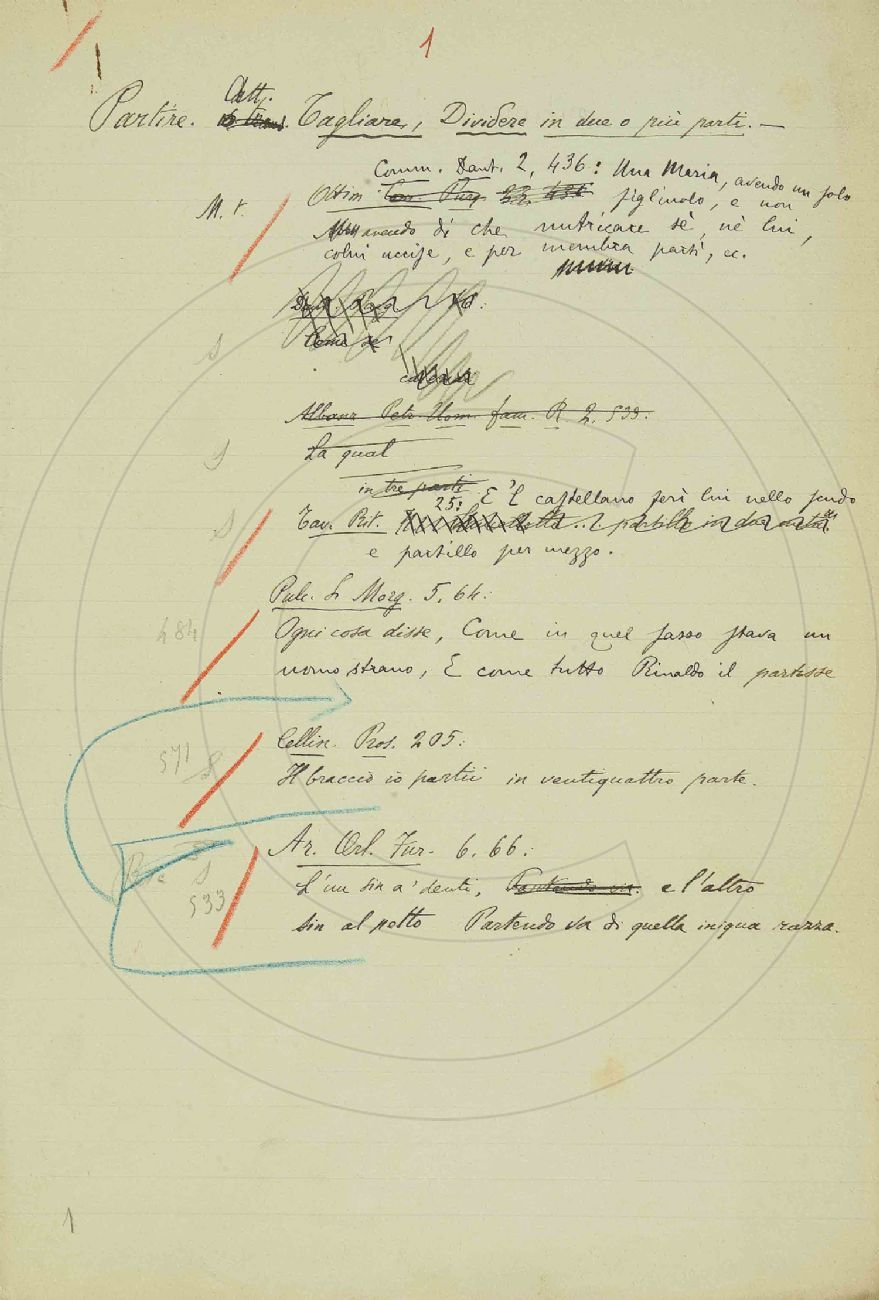 1
Partire. Att. Tagliare, Dividere in due o più parti. —
Comm. Dant. 2, 436: Una Maria, avendo un solo
M. t. Ottim. figliuolo, e non
avendo di che nutricare sè, nè lui,
colui uccise, e per membra partì, ec.
S
Albanz. Petr. Uom. fam. R 2. 533.
S La qual
in tre parti
25: E 'l castellano ferì lui nello scudo
S Tav. Rit.
e partillo per mezzo.
Pulc. L. Morg. 5, 64:
484 Ogni cosa disse, Come in quel sasso stava un
uomo strano, E come tutto Rinaldo il partisse
Cellin. Pros. 205:
571 S Il braccio io partii in ventiquattro parte.
Ar. Orl. Fur. 6. 66:
S L'un sin a' denti, e l'altro
533 sin al petto Partendo va di quella iniqua razza.
1